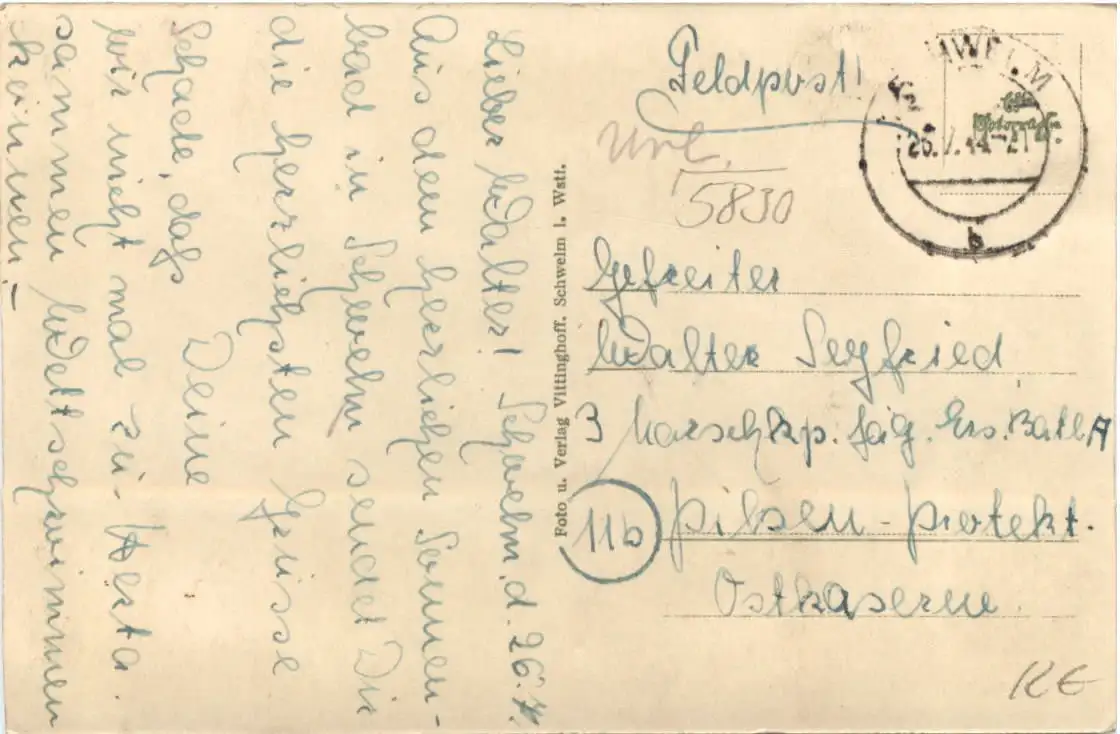 Lieber Walter! Schwelm, d. 26.7.
Aus dem herrlichen Sonnen-
bad in Schwelm sendet Dir
die herzlichsten Grüsse
Deine
Herta.
Schade, dass
wir nicht mal zu-
sammen Wettschwimmen
können.-
Foto u. Verlag Vittinghoff. Schwelm i. Wstf.
Feldpost!
5830
26.7.44-21
b
Gefreiter
Walter Seyfried
3 Marschkp. Jäg. Ers. Batl. A
11b Pilsen-Protekt.
Ostkaserne
KE